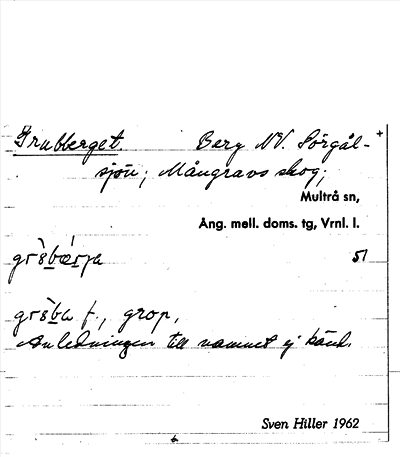 Grubberget. Berg NV. Sörgål-
sjön; Mångravs skog;
Multrå sn,
Ång. mell. doms. tg, Vrnl. l.
51
f., grop,
Anledningen till namnet ej känd.
Sven Hiller 1962